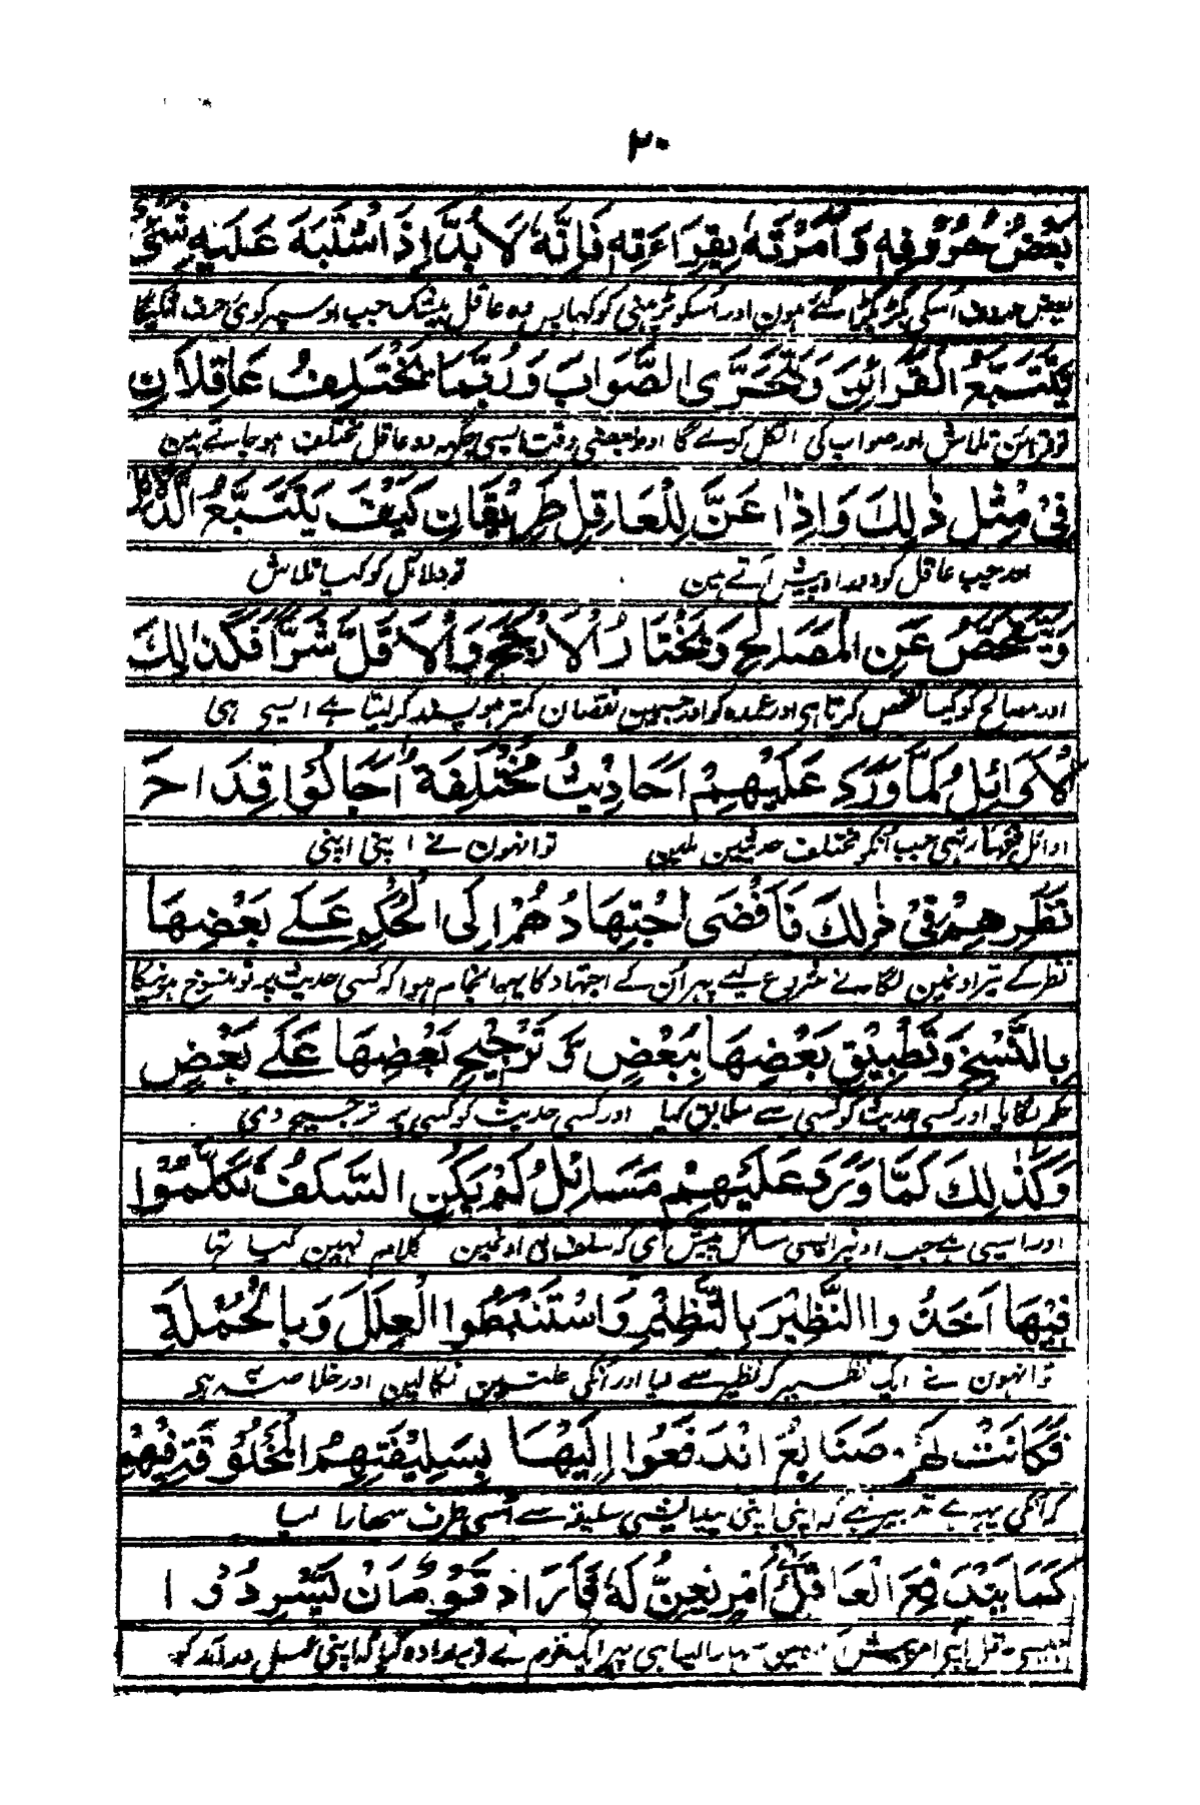 ٢٠
بَعْضُ حُرُوْفِهٖ وَاَمَرْتَهٗ بِقِرَاءَتِهٖ فَاِنَّهٗ لَا بُدَّ اِذَا اشْتَبَهَ عَلَيْهِ شَىْءٌ
بعض حروف اسکی بگڑ گئے ہون اور اسکو پڑہنی کو کہا پس وہ عاقل بیشک جب اوسپر کوئ حرف اٹکیگا
يَتَتَبَّعُ الْقَرَائِنَ وَيَتَحَرَّى الصَّوَابَ وَرُبَّمَا يَخْتَلِفُ عَاقِلَانِ
تو قرائن تلاش اور صواب کی اٹکل کرے گا اور بعضی وقت ایسی جگہہ دو عاقل مختلف ہو جاتے ہین
فِىْ مِثْلِ ذٰلِكَ وَاِذَا عَنَّ لِلْعَاقِلِ طَرِيْقَانِ كَيْفَ يَتَتَبَّعُ الدَّلَائِلَ
اور جب عاقل کو دو راہ پیش آتے ہین تو دلائل کو کیسا تلاش
وَيَتَفَحَّصُ عَنِ الْمَصَالِحِ وَيَخْتَارُ الْاَرْجَحَ وَالْاَقَلَّ شَرًّا فَكَذٰلِكَ
اور مصالح کو کیسا تفحص کرتا ہی اور عمدہ کو اور جسمین نقصان کمتر ہو پسند کر لیتا ہے ایسی ہی
الْاَوَائِلُ لَمَّا وَرَدَ عَلَيْهِمْ اَحَادِيْثُ مُخْتَلِفَةٌ اَجَالُوْا قِدَاحَ
اوائل فقہا رتہی جب انکو مختلف حدیثین ملین تو انہون نے اپنی اپنی
نَظَرِهِمْ فِىْ ذٰلِكَ فَاَفْضَى اجْتِهَادُهُمْ اِلَى الْحُكْمِ عَلٰے بَعْضِهَا
نظر کے تیر اونمین لگانے شروع کیے پہر ان کے اجتہاد کا یہہ انجام ہوا کہ کسی حدیث پر تو منسوخ ہونیکا
بِالنَّسْخِ وَتَطْبِيْقِ بَعْضِهَا بِبَعْضٍ وَتَرْجِيْحِ بَعْضِهَا عَلٰے بَعْضٍ
حکم لگایا اور کسی حدیث کو کسی سے مطابق کیا اور کسی حدیث کو کسی پر ترجیح دی
وَكَذٰلِكَ لَمَّا وَرَدَ عَلَيْهِمْ مَسَائِلُ لَمْ يَكُنِ السَّلَفُ تَكَلَّمُوْا
اور ایسی ہے جب اونپر ایسی مسائل پیش آئ کہ سلف نے اونمین کلام نہین کیا تہا
فِيْهَا اَخَذُوا النَّظِيْرَ بِالنَّظِيْرِ وَاسْتَنْبَطُوا الْعِلَلَ وَبِالْجُمْلَةِ
تو انہون نے ایک نظیر کو نظیر سے لیا اور انکی علتین نکالین اور خلاصہ یہہ ہی
فَكَانَتْ لَهُمْ صَنَائِعُ انْدَفَعُوا اِلَيْهَا بِسَلِيْقَتِهِمُ الْمَخْلُوْقَةِ فِيْهِمْ
کہ انکی یہہ ہے تدبیر ہے کہ اپنی اپنی پیدایشی سلیقہ سے اُسی طرف سہارا لیا
كَمَا يَنْدَفِعُ الْعَاقِلُ اَمْرٍ يَعِنُّ لَهٗ فَاَرَادَ قَوْمٌ اَنْ يَسْرُدُوْا
جیسی عاقل اپنے امر پیش آمدہ مین سہارا لیتا ہی پہر ایک قوم نے تو یہہ ارادہ کیا کہ اپنی عمل درآمد کو